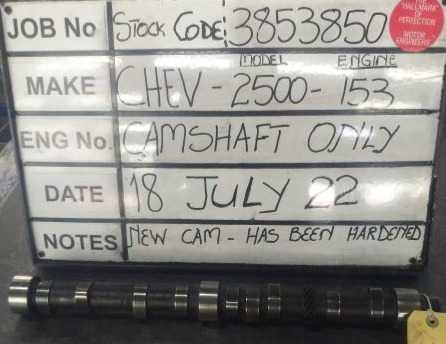 JOB No STOCK CODE: 3853850
"HALLMARK"
OF
PERFECTION
MOTOR
ENGINEERS
MODEL ENGINE
MAKE CHEV - 2500 - 153
ENG No. CAMSHAFT ONLY
DATE 18 JULY 22
NOTES NEW CAM - HAS BEEN HARDENED